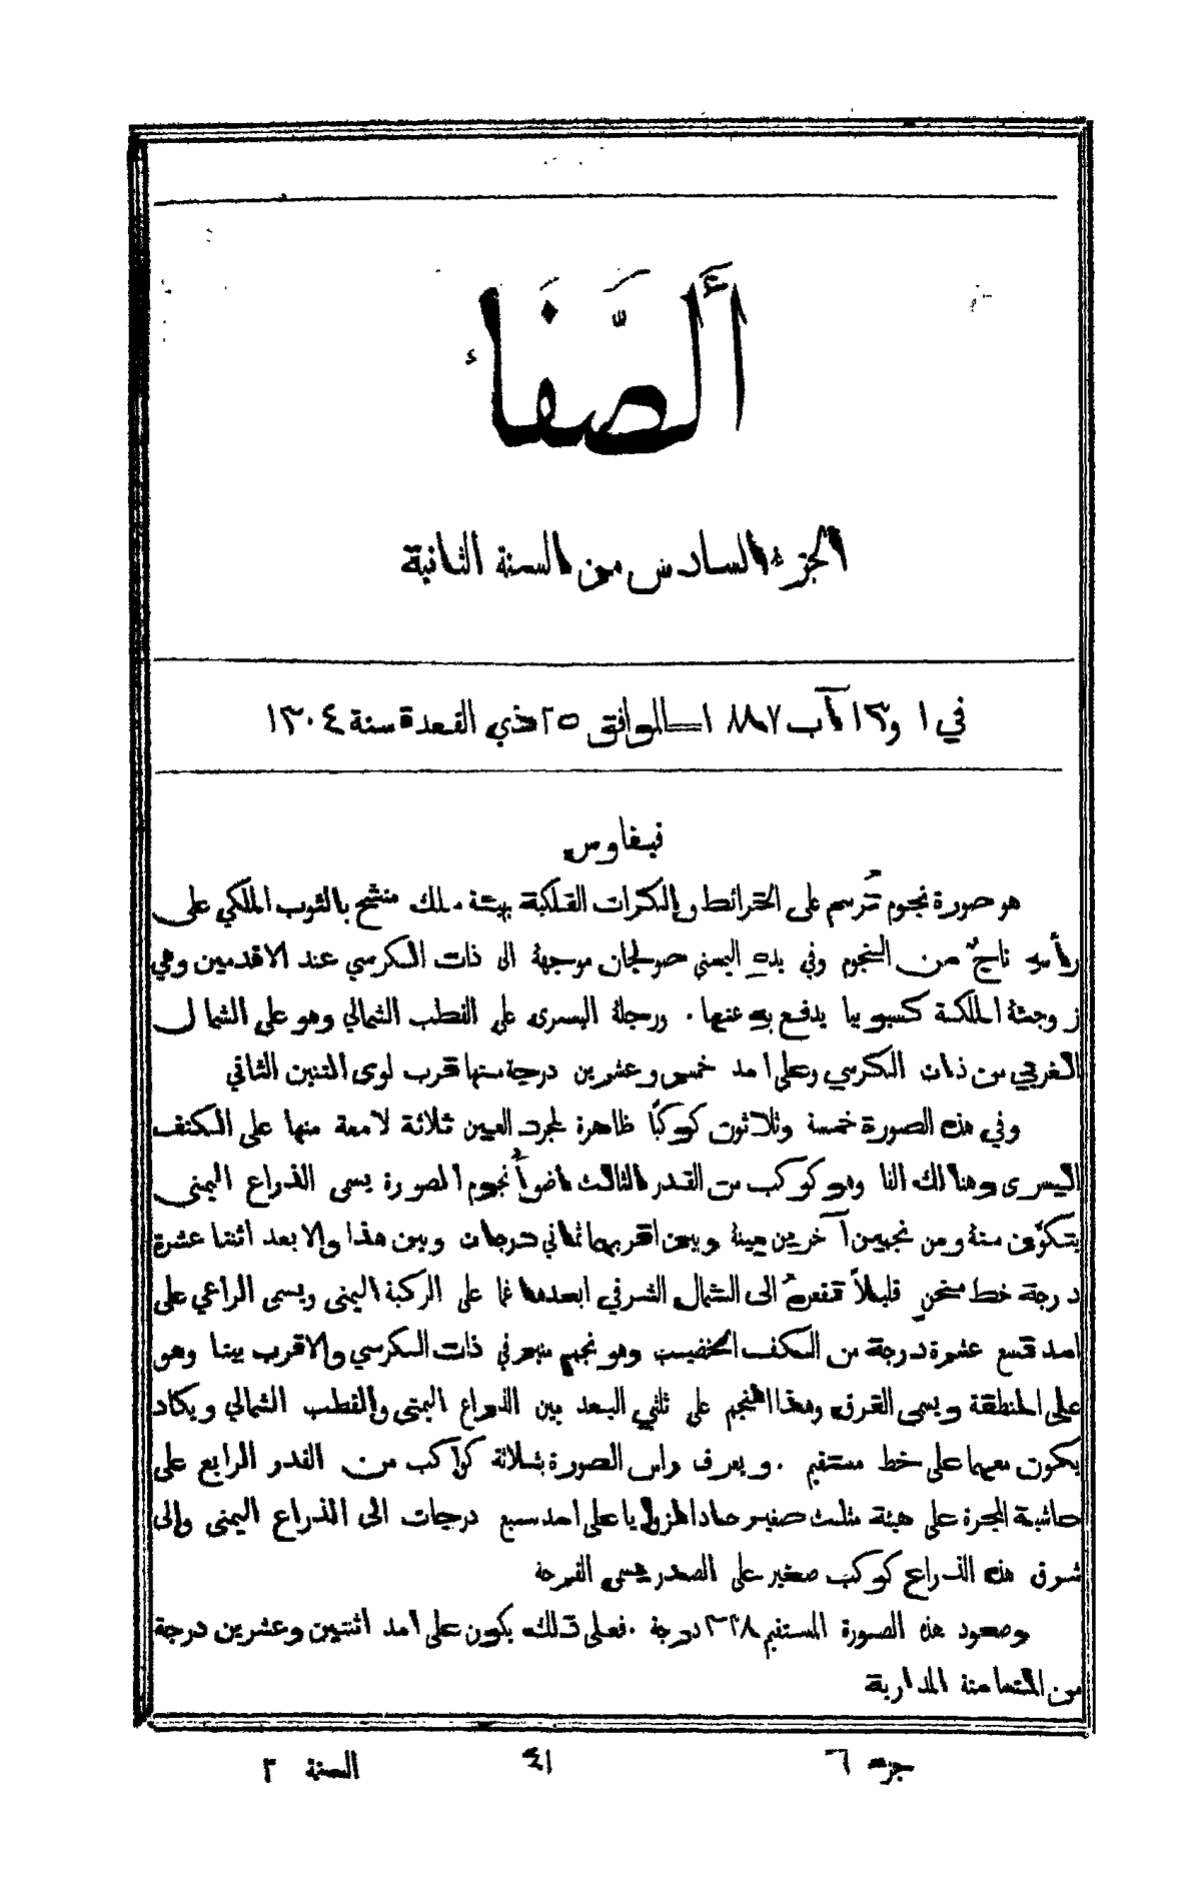 أَلصَّفَاء
الجزء السادس من السنة الثانية
في ١ و١٣ آب ١٨٨٧ = الموافق ٢٥ ذي القعدة سنة ١٣٠٤
فيفاوس
هو صورة نجوم تُرسم على الخرائط والكرات الفلكية بهيئة ملك متشح بالثوب الملكي على
رأسه تاجٌ من النجوم وفي يده اليمنى صولجان موجهة الى ذات الكرسي عند الاقدمين وهي
زوجتة الملكة كسيوبيا يدفع به عنها . ورجلة اليسرى على القطب الشمالي وهو على الشمال
الغربي من ذات الكرسي وعلى امد خمس وعشرين درجة منها قرب لوى التنين الثاني
وفي هذه الصورة خمسة وثلاثون كوكبًا ظاهرة لمجرد العين ثلاثة لامعة منها على الكتف
اليسرى وهنالك الفا وهو كوكب من القدر الثالث اضوأُ نجوم الصورة يسمى الذراع اليمنى
يتكوّن منة ومن نجمين آخرين بيئة وبين اقربهما ثماني درجات وبين هذا والابعد اثنتا عشرة
درجة خط منحنٍ قليلاً تقعرهُ الى الشمال الشرقي ابعدهما غما على الركبة اليمنى ويسمى الراعي على
امد تسع عشرة درجة من الكف الخضيب وهو نجم نير في ذات الكرسي والاقرب بيتا وهو
على المنطقة ويسمى الفرق وهذا النجم على ثلثي البعد بين الذراع اليمنى والقطب الشمالي ويكاد
يكون معهما على خط مستقيم . ويعرف راس الصورة بثلاثة كواكب من القدر الرابع على
حاشية المجرة على هيئة مثلث صغير حاد الزوايا على امد سبع درجات الى الذراع اليمنى والى
شرق هذه الذراع كوكب صغير على الصدر يسمى القرحة
وصعود هذه الصورة المستقيم ٣٣٨ درجة . فعلى ذلك يكون على امد اثنتين وعشرين درجة
من المتسامتة المدارية
جزء ٦
٤١
السنة ٢